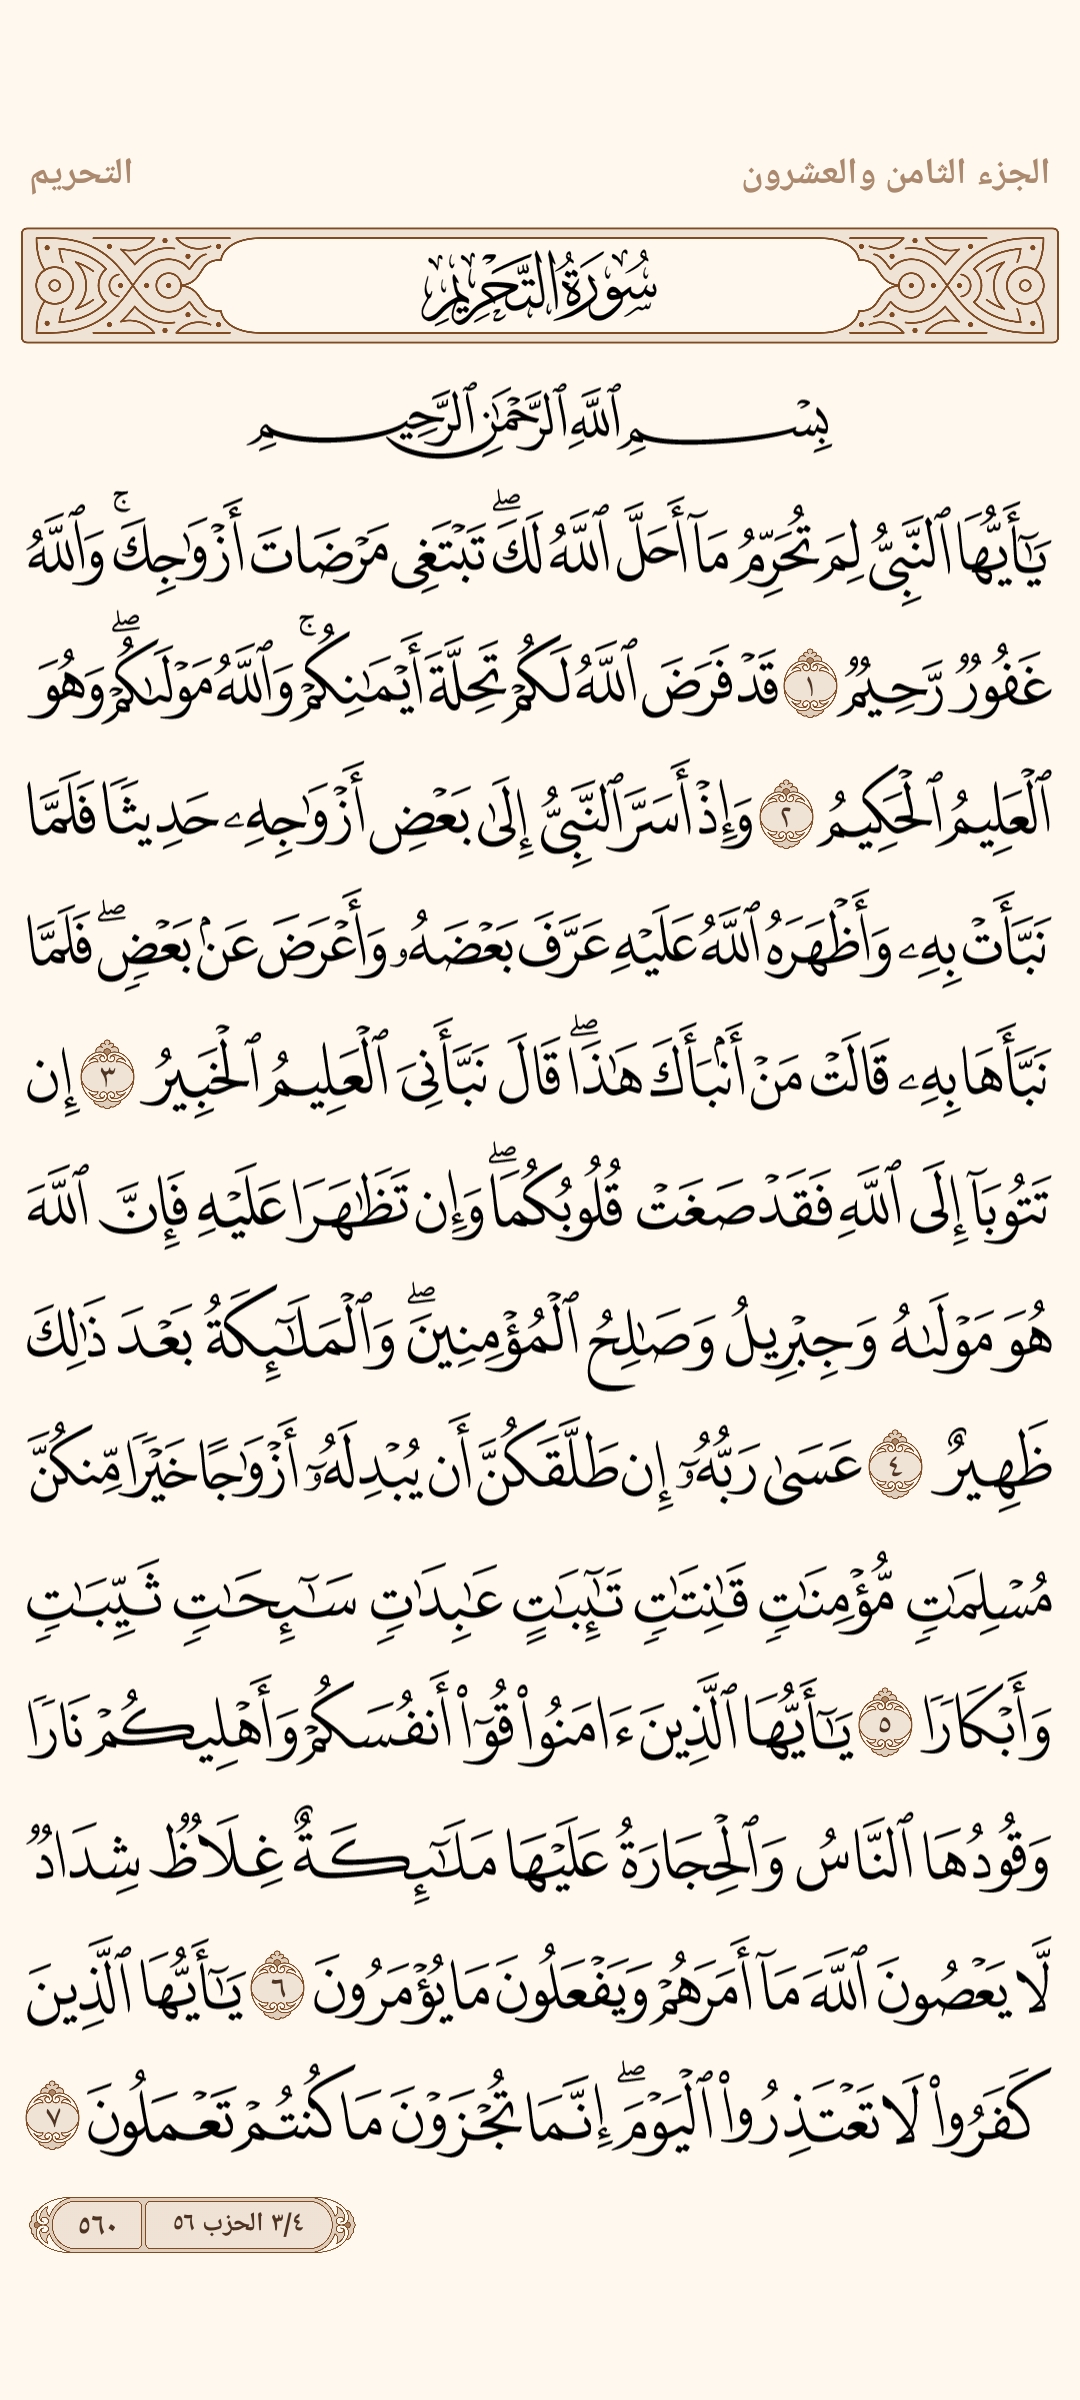 الجزء الثامن والعشرون
التحريم
سُورَةُ التَّحْرِيمِ
بِسْمِ ٱللَّهِ ٱلرَّحْمَٰنِ ٱلرَّحِيمِ
يَٰٓأَيُّهَا ٱلنَّبِىُّ لِمَ تُحَرِّمُ مَآ أَحَلَّ ٱللَّهُ لَكَ ۖ تَبْتَغِى مَرْضَاتَ أَزْوَٰجِكَ ۚ وَٱللَّهُ
غَفُورٌ رَّحِيمٌ ١ قَدْ فَرَضَ ٱللَّهُ لَكُمْ تَحِلَّةَ أَيْمَٰنِكُمْ ۚ وَٱللَّهُ مَوْلَىٰكُمْ ۖ وَهُوَ
ٱلْعَلِيمُ ٱلْحَكِيمُ ٢ وَإِذْ أَسَرَّ ٱلنَّبِىُّ إِلَىٰ بَعْضِ أَزْوَٰجِهِۦ حَدِيثًا فَلَمَّا
نَبَّأَتْ بِهِۦ وَأَظْهَرَهُ ٱللَّهُ عَلَيْهِ عَرَّفَ بَعْضَهُۥ وَأَعْرَضَ عَنۢ بَعْضٍ ۖ فَلَمَّا
نَبَّأَهَا بِهِۦ قَالَتْ مَنْ أَنۢبَأَكَ هَٰذَا ۖ قَالَ نَبَّأَنِىَ ٱلْعَلِيمُ ٱلْخَبِيرُ ٣ إِن
تَتُوبَآ إِلَى ٱللَّهِ فَقَدْ صَغَتْ قُلُوبُكُمَا ۖ وَإِن تَظَٰهَرَا عَلَيْهِ فَإِنَّ ٱللَّهَ
هُوَ مَوْلَىٰهُ وَجِبْرِيلُ وَصَٰلِحُ ٱلْمُؤْمِنِينَ ۖ وَٱلْمَلَٰٓئِكَةُ بَعْدَ ذَٰلِكَ
ظَهِيرٌ ٤ عَسَىٰ رَبُّهُۥٓ إِن طَلَّقَكُنَّ أَن يُبْدِلَهُۥٓ أَزْوَٰجًا خَيْرًا مِّنكُنَّ
مُسْلِمَٰتٍ مُّؤْمِنَٰتٍ قَٰنِتَٰتٍ تَٰٓئِبَٰتٍ عَٰبِدَٰتٍ سَٰٓئِحَٰتٍ ثَيِّبَٰتٍ
وَأَبْكَارًا ٥ يَٰٓأَيُّهَا ٱلَّذِينَ ءَامَنُوا۟ قُوٓا۟ أَنفُسَكُمْ وَأَهْلِيكُمْ نَارًا
وَقُودُهَا ٱلنَّاسُ وَٱلْحِجَارَةُ عَلَيْهَا مَلَٰٓئِكَةٌ غِلَاظٌ شِدَادٌ
لَّا يَعْصُونَ ٱللَّهَ مَآ أَمَرَهُمْ وَيَفْعَلُونَ مَا يُؤْمَرُونَ ٦ يَٰٓأَيُّهَا ٱلَّذِينَ
كَفَرُوا۟ لَا تَعْتَذِرُوا۟ ٱلْيَوْمَ ۖ إِنَّمَا تُجْزَوْنَ مَا كُنتُمْ تَعْمَلُونَ ٧
٣/٤ الحزب ٥٦
٥٦٠